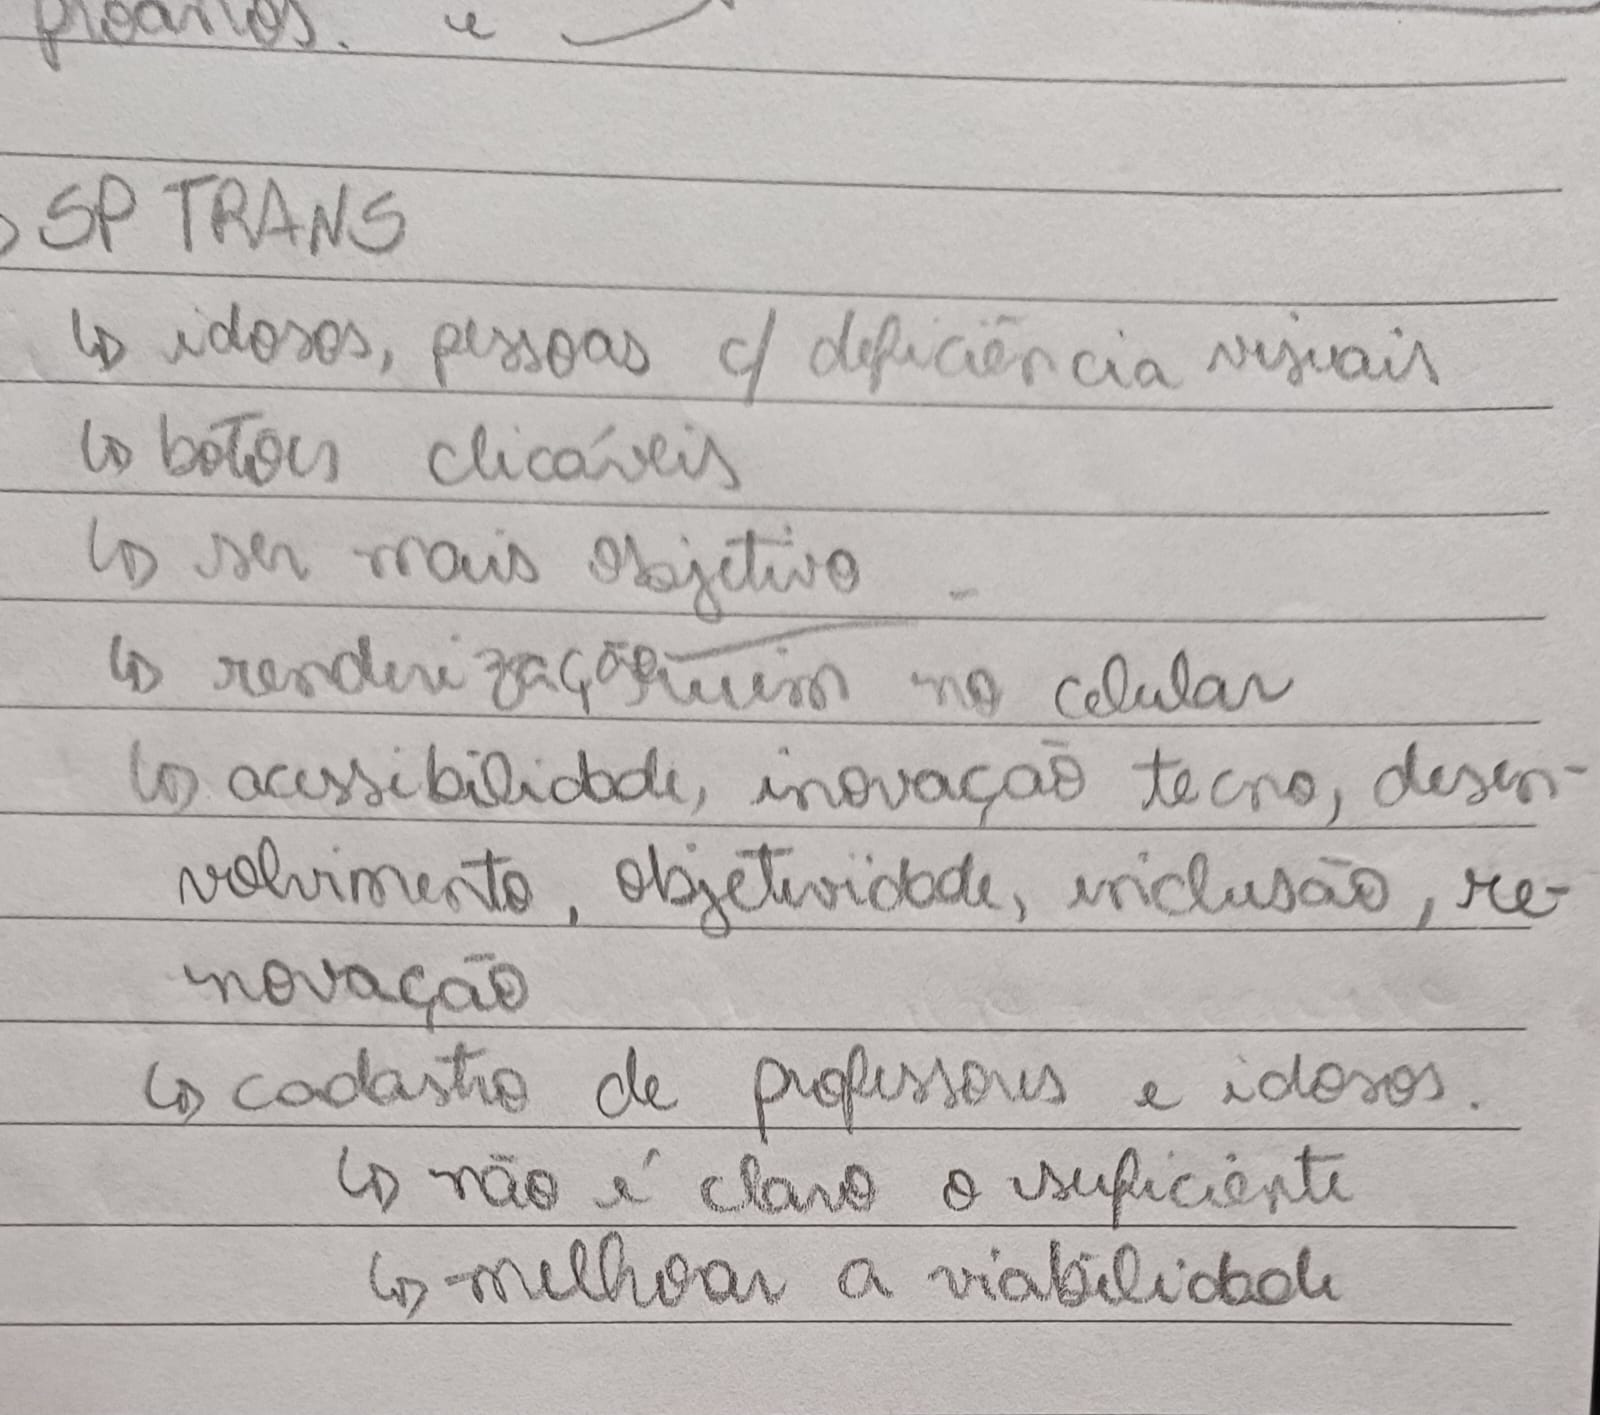 SP TRANS
↳ idosos, pessoas c/ deficiência visuais
↳ botões clicáveis
↳ ser mais objetivo
↳ renderização ruim no celular
↳ acessibilidade, inovação tecno, desen-
volvimento, objetividade, inclusão, re-
novação
↳ cadastro de professores e idosos.
↳ não é claro o suficiente
↳ melhorar a viabilidade